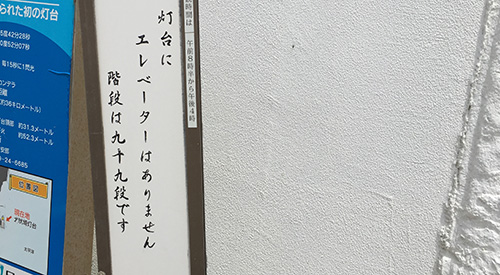 時間は 午前8時半から午後4時
灯台に
エレベーターはありません
階段は九十九段です
られた初の灯台
5度42分28秒
0度52分07秒
毎15秒に1閃光
カンデラ
約31.3メートル
約52.3メートル
-24-5685
位置図
現在地